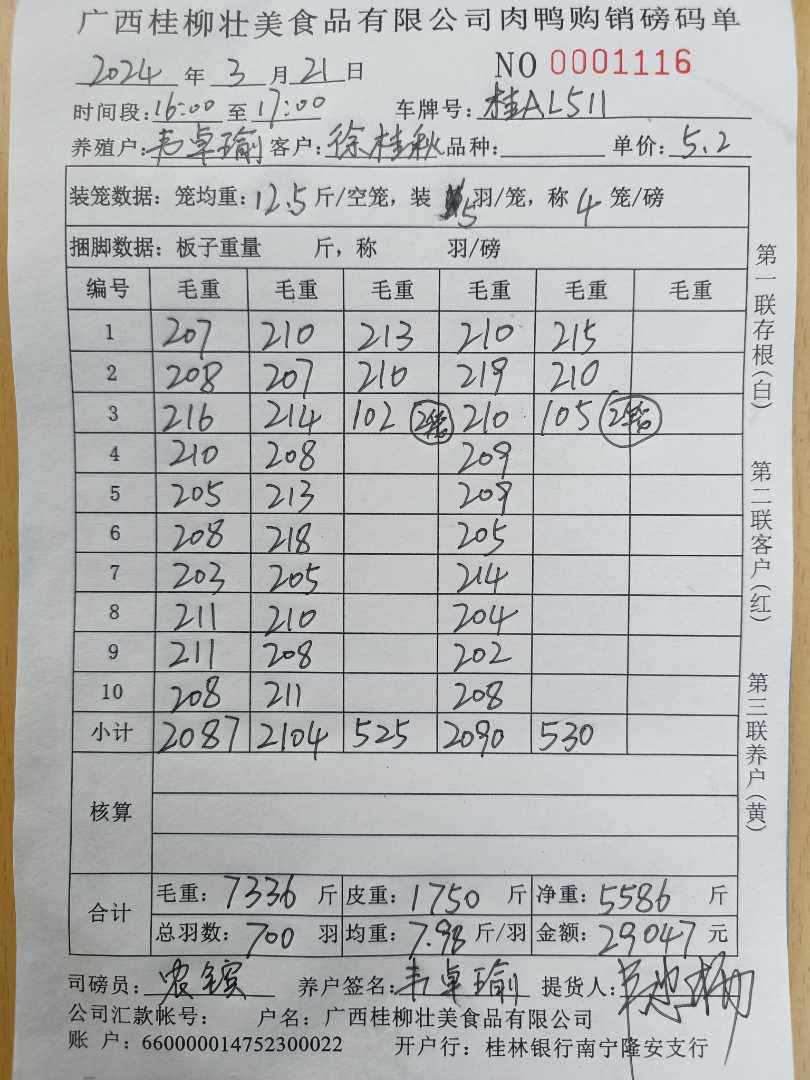 广西桂柳壮美食品有限公司肉鸭购销磅码单
2024 年 3 月 21 日 NO 0001116
时间段:16:00 至 17:00 车牌号: 桂AL511
养殖户: 韦卓瑜 客户: 徐桂秋 品种: 单价: 5.2
装笼数据: 笼均重: 12.5 斤/空笼, 装 5 羽/笼, 称 4 笼/磅
捆脚数据: 板子重量 斤, 称 羽/磅
编号 毛重 毛重 毛重 毛重 毛重 毛重
1 207 210 213 210 215
2 208 207 210 219 210
3 216 214 102 2笼 210 105 2笼
4 210 208 209
5 205 213 209
6 208 218 205
7 203 205 214
8 211 210 204
9 211 208 202
10 208 211 208
小计 2087 2104 525 2090 530
核算
合计 毛重: 7336 斤 皮重: 1750 斤 净重: 5586 斤
总羽数: 700 羽 均重: 7.98 斤/羽 金额: 29047 元
司磅员: 农 养户签名: 韦卓瑜 提货人:
公司汇款帐号: 户名: 广西桂柳壮美食品有限公司
账 户: 660000014752300022 开户行: 桂林银行南宁隆安支行
第一联存根(白)
第二联客户(红)
第三联养户(黄)